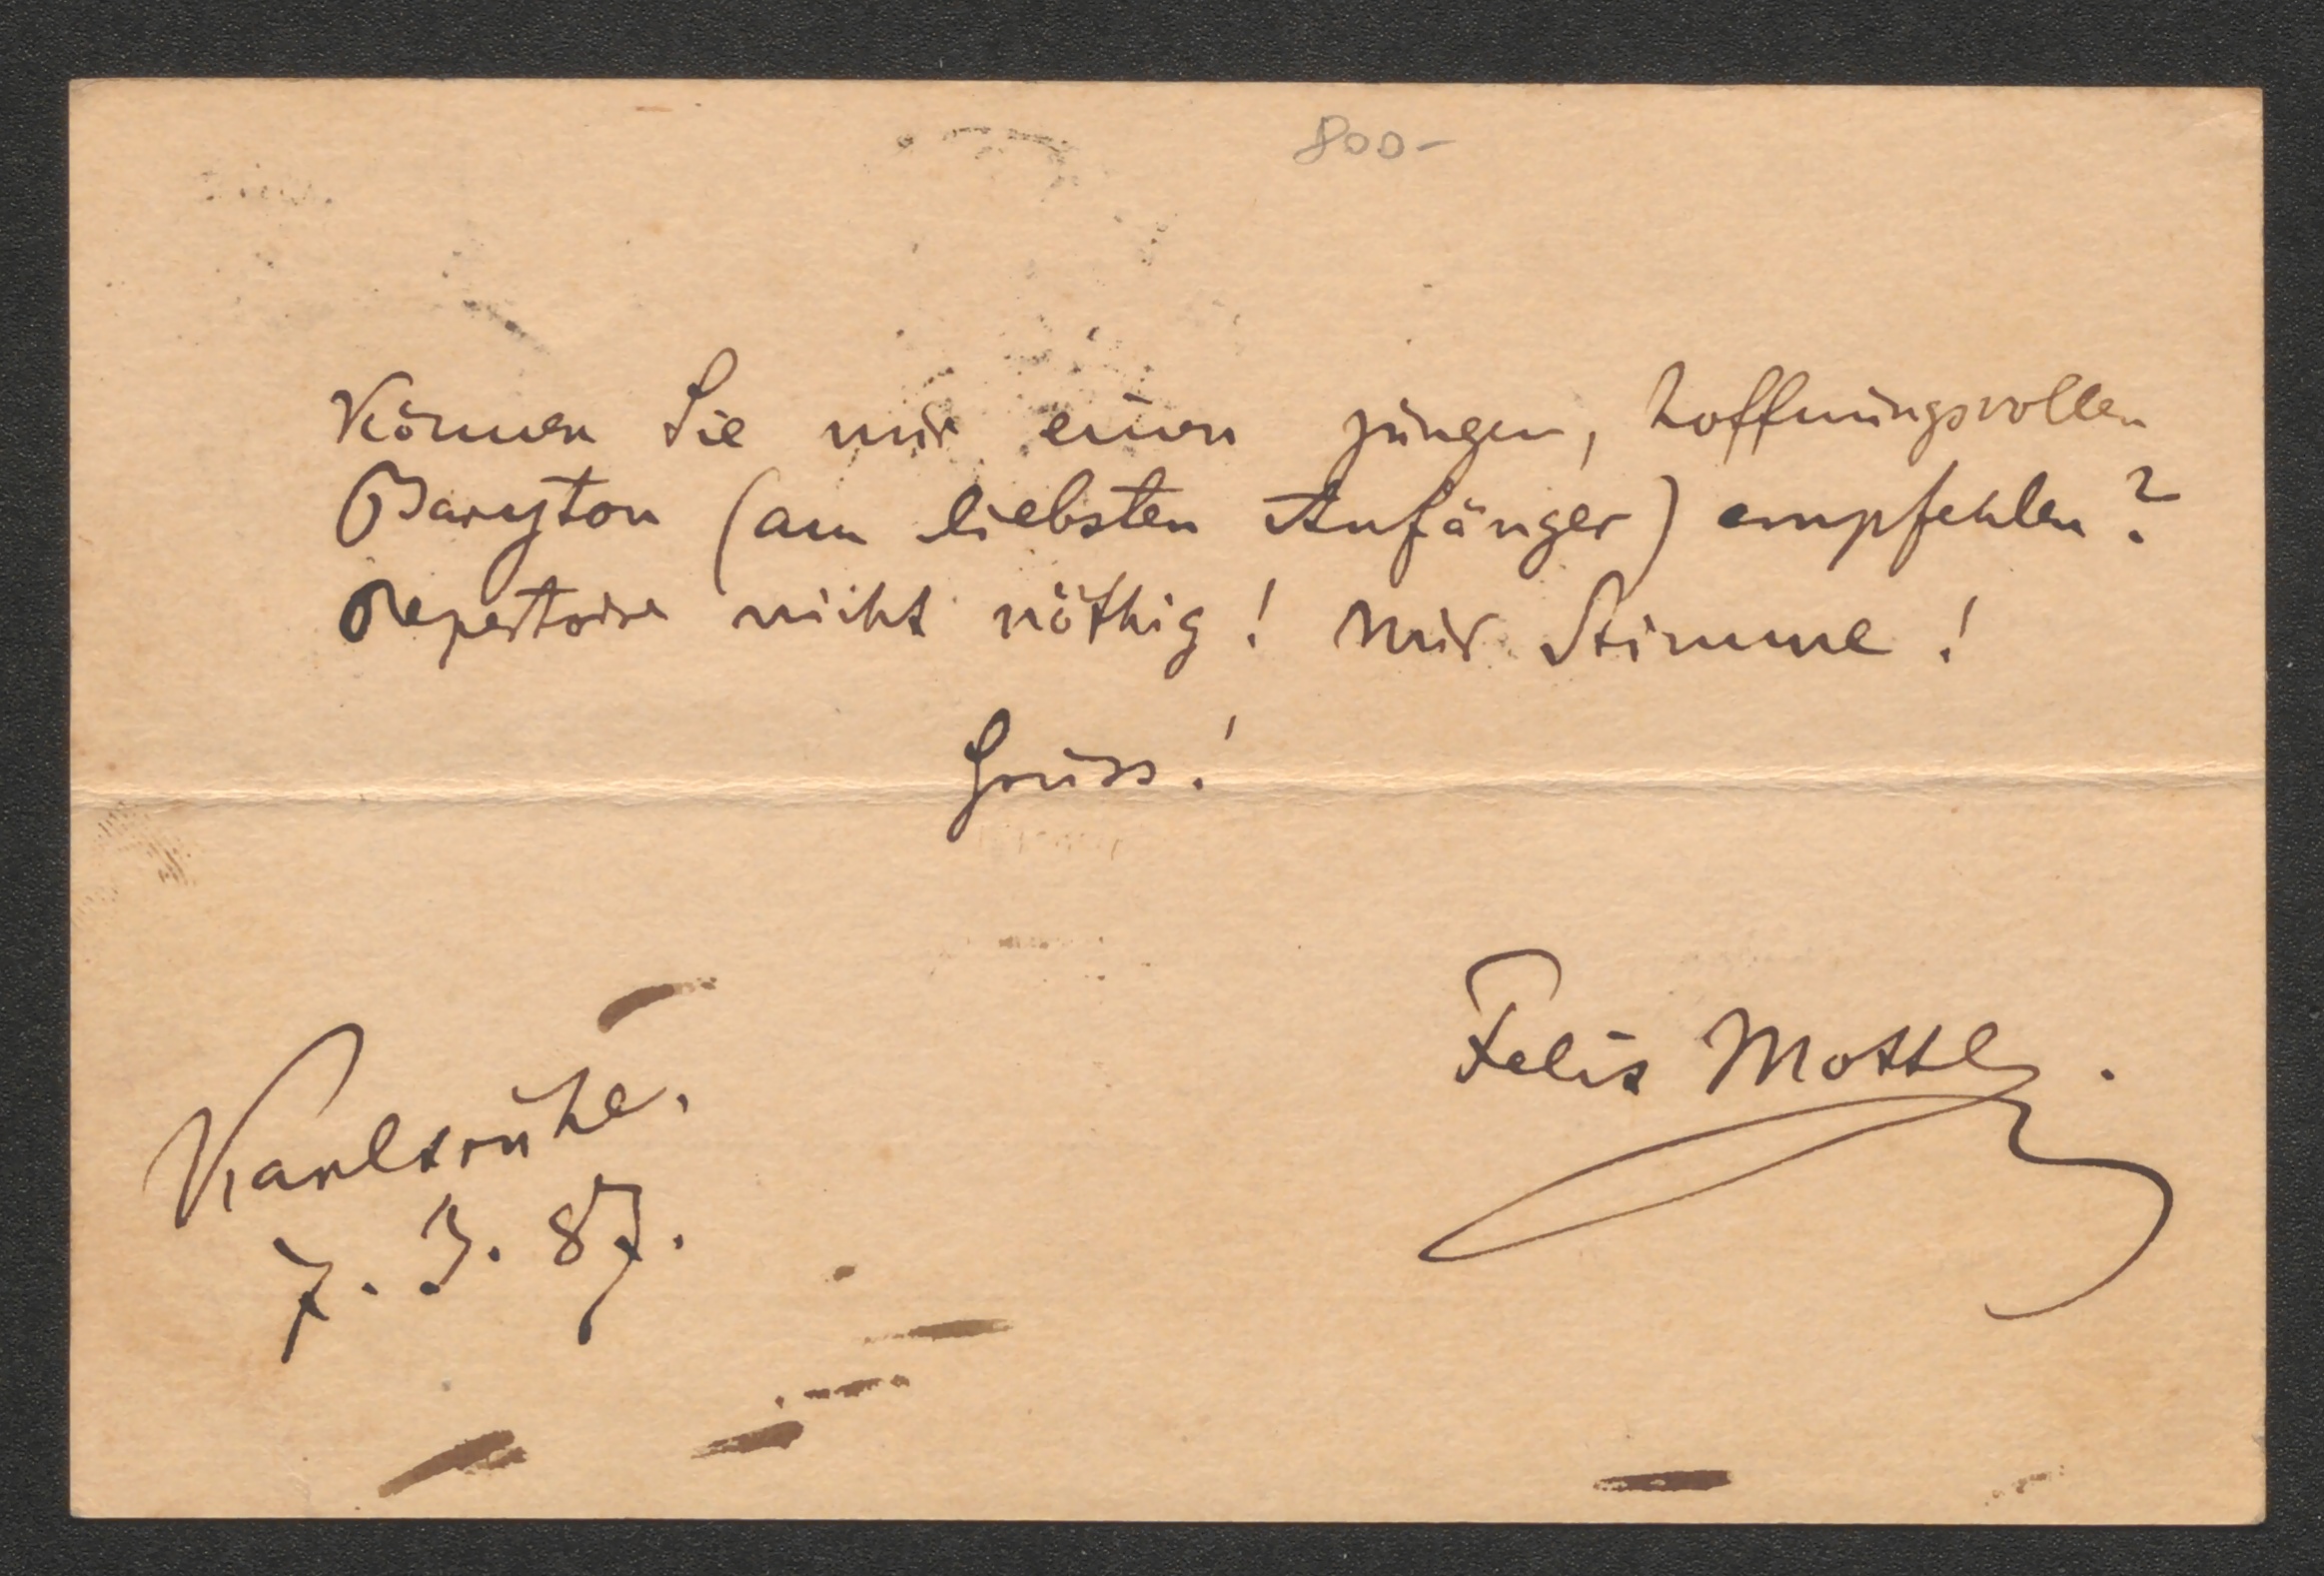 800-
Können Sie mir einen jungen, hoffnungsvollen
Baryton (am liebsten Anfänger) empfehlen?
Repertoire nicht nöthig! Nur Stimme!
Gruss!
Felix Mottl.
Karlsruhe.
7. 3. 87.